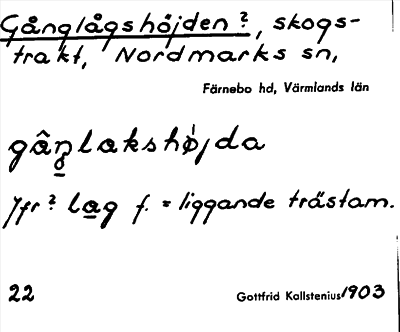 Gånglågshöjden?, skogs-
trakt, Nordmarks sn,
Färnebo hd, Värmlands län
gâŋ̲lakshø̀jda
Jfr? la̲g f. = liggande trästam.
22 Gottfrid Kallstenius 1903